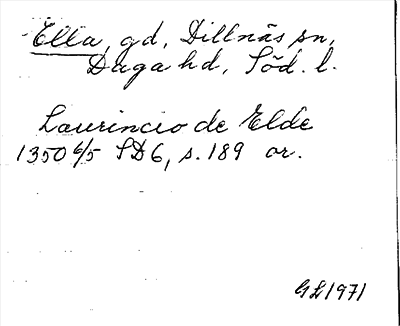 Ella, gd, Dillnäs sn,
Daga hd, Söd. l.
Laurincio de Elde
1350 6/5 SD6, s. 189 or.
GL1971